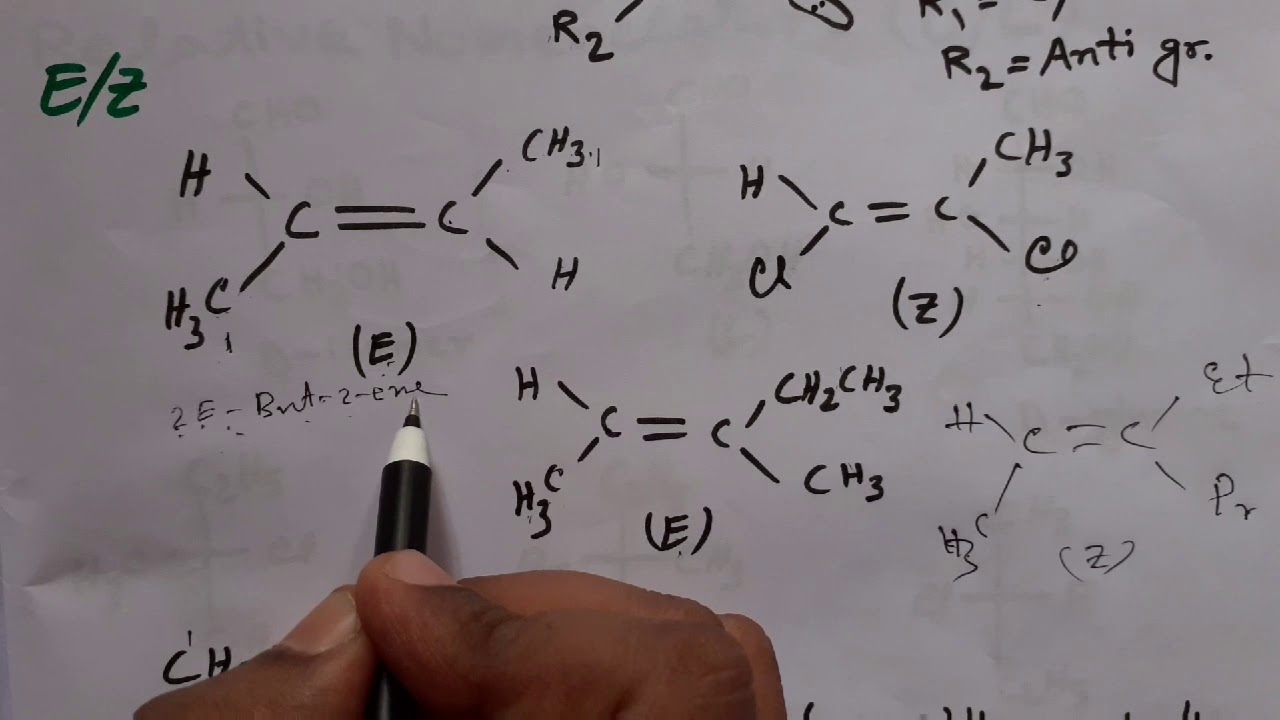 R2
R1 =
R2 = Anti gr.
E/Z
H CH3
C = C
H3C H
(E)
2E-But-2-ene
H CH3
C = C
Cl Cl
(Z)
H CH2CH3
C = C
H3C CH3
(E)
H Et
C = C
H3C Pr
(Z)
CH